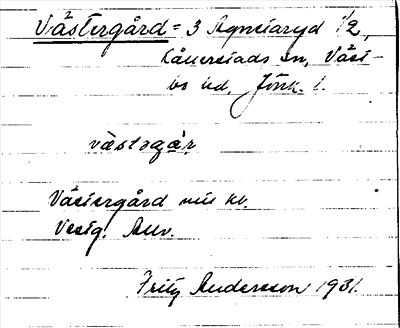 Västergård = 3 Agnetaryd 1/2,
Kållerstads sn, Väst-
bo hd, Jönk. l.
västəgár
Västergård
Vestg.
Fritz Andersson 1931.